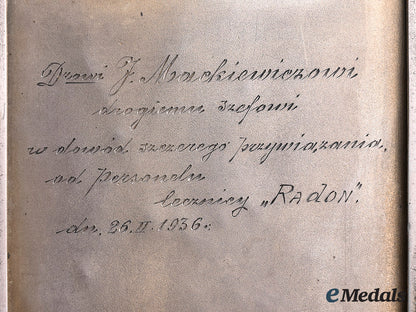 Drowi J. Mackiewiczowi
drogiemu szefowi
w dowód szczerego przywiązania,
od Personelu
lecznicy „RADON”.
dn. 26.II.1936r.
eMedals